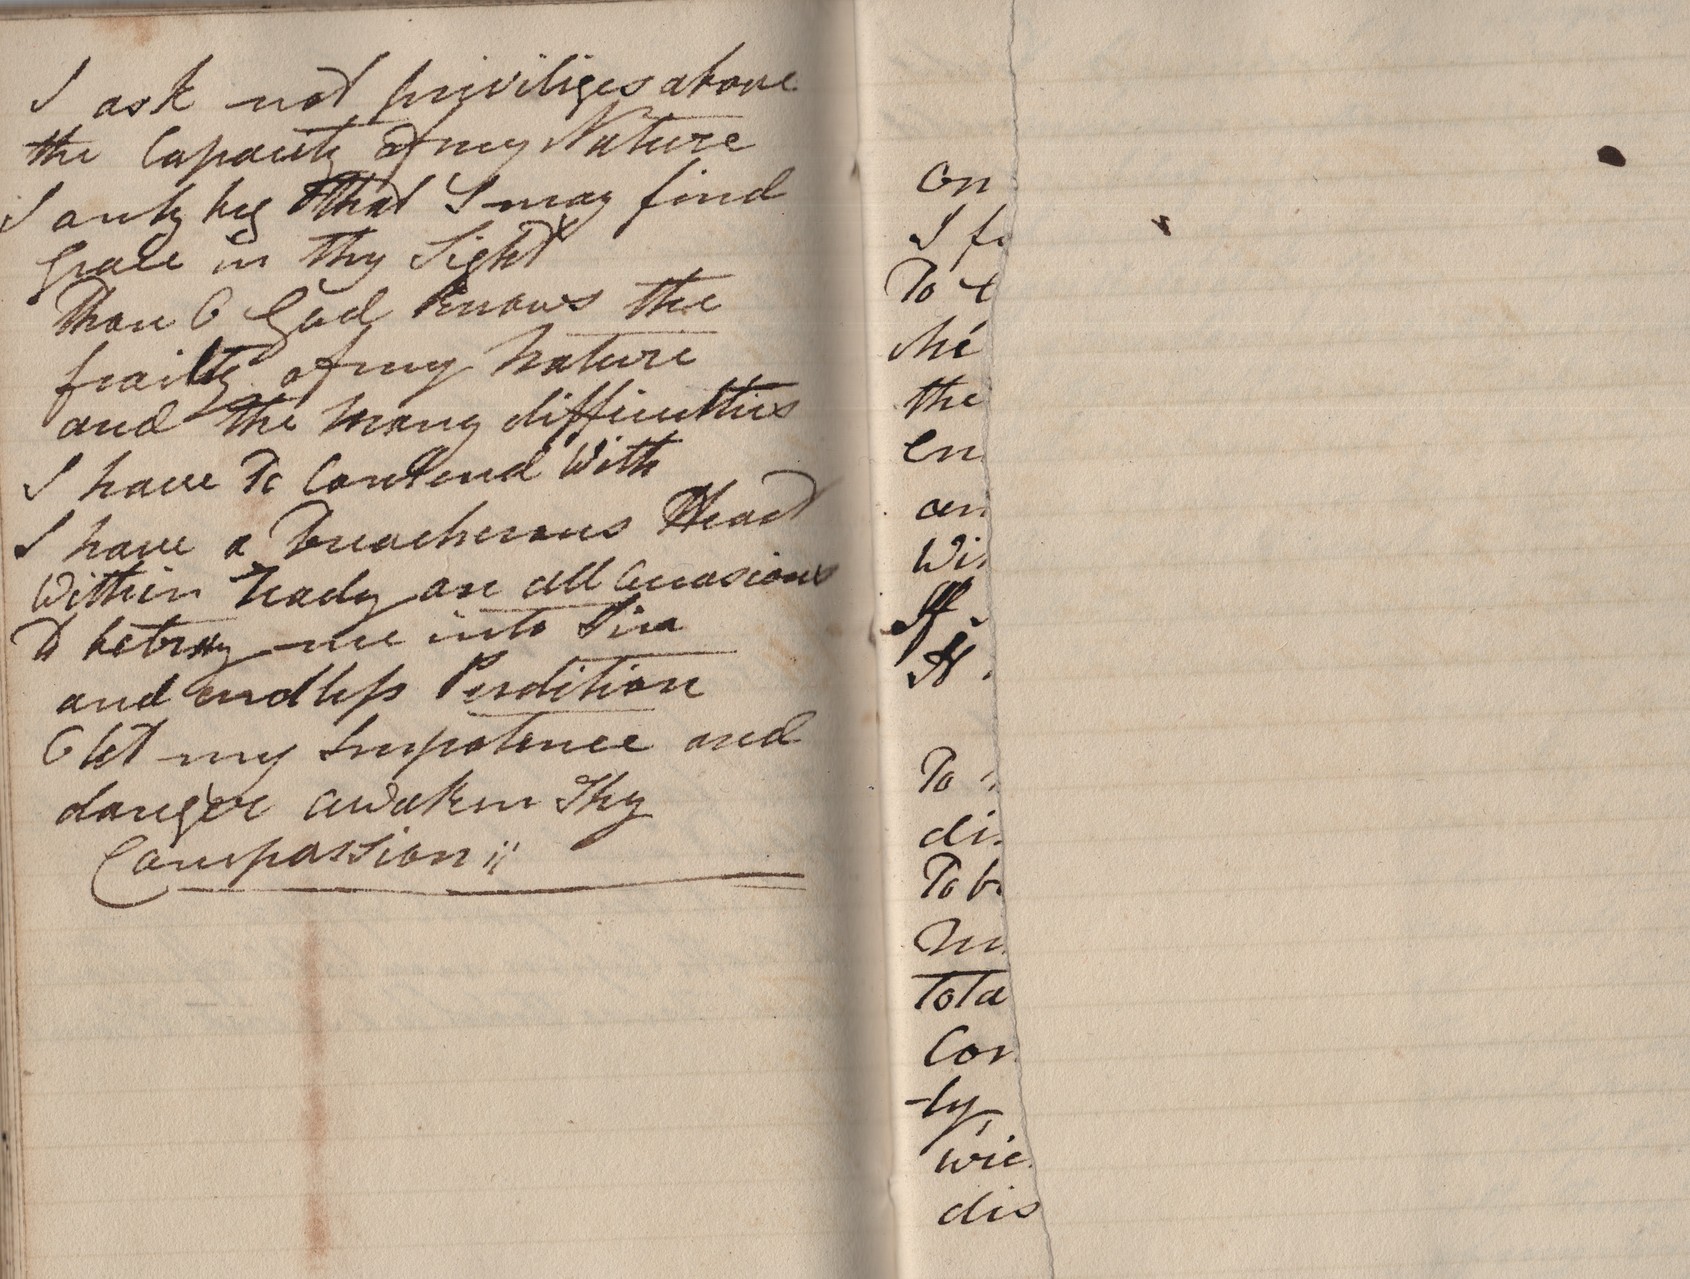 I ask not priviliges above
the Capacity of my Nature
I only beg that I may find
Grace in thy Sight
Thou O God knows the
frailty of my Nature
and the many difficulties
I have To Contend With
I have a Treacherous Heart
Within ready on all Occasions
To betray me into Sin
and endless Perdition
O let my Impotence and
danger awaken Thy
Compassion
On
I fo
To
the
en
an
Wi
To
di
To b
Tota
Con
-ly
wic
dis